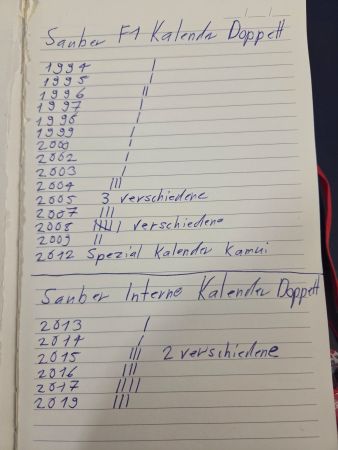 Sauber F1 Kalender Doppelt
1994 |
1995 |
1996 ||
1997 |
1998 |
1999 |
2000 |
2002 |
2003 |
2004 |||
2005 3 verschiedene
2007 |||
2008 |||| | verschiedene
2009 ||
2012 Spezial Kalender Kamui
Sauber Interne Kalender Doppelt
2013 |
2014 |
2015 ||| 2 verschiedene
2016 |||
2017 ||||
2019 |||